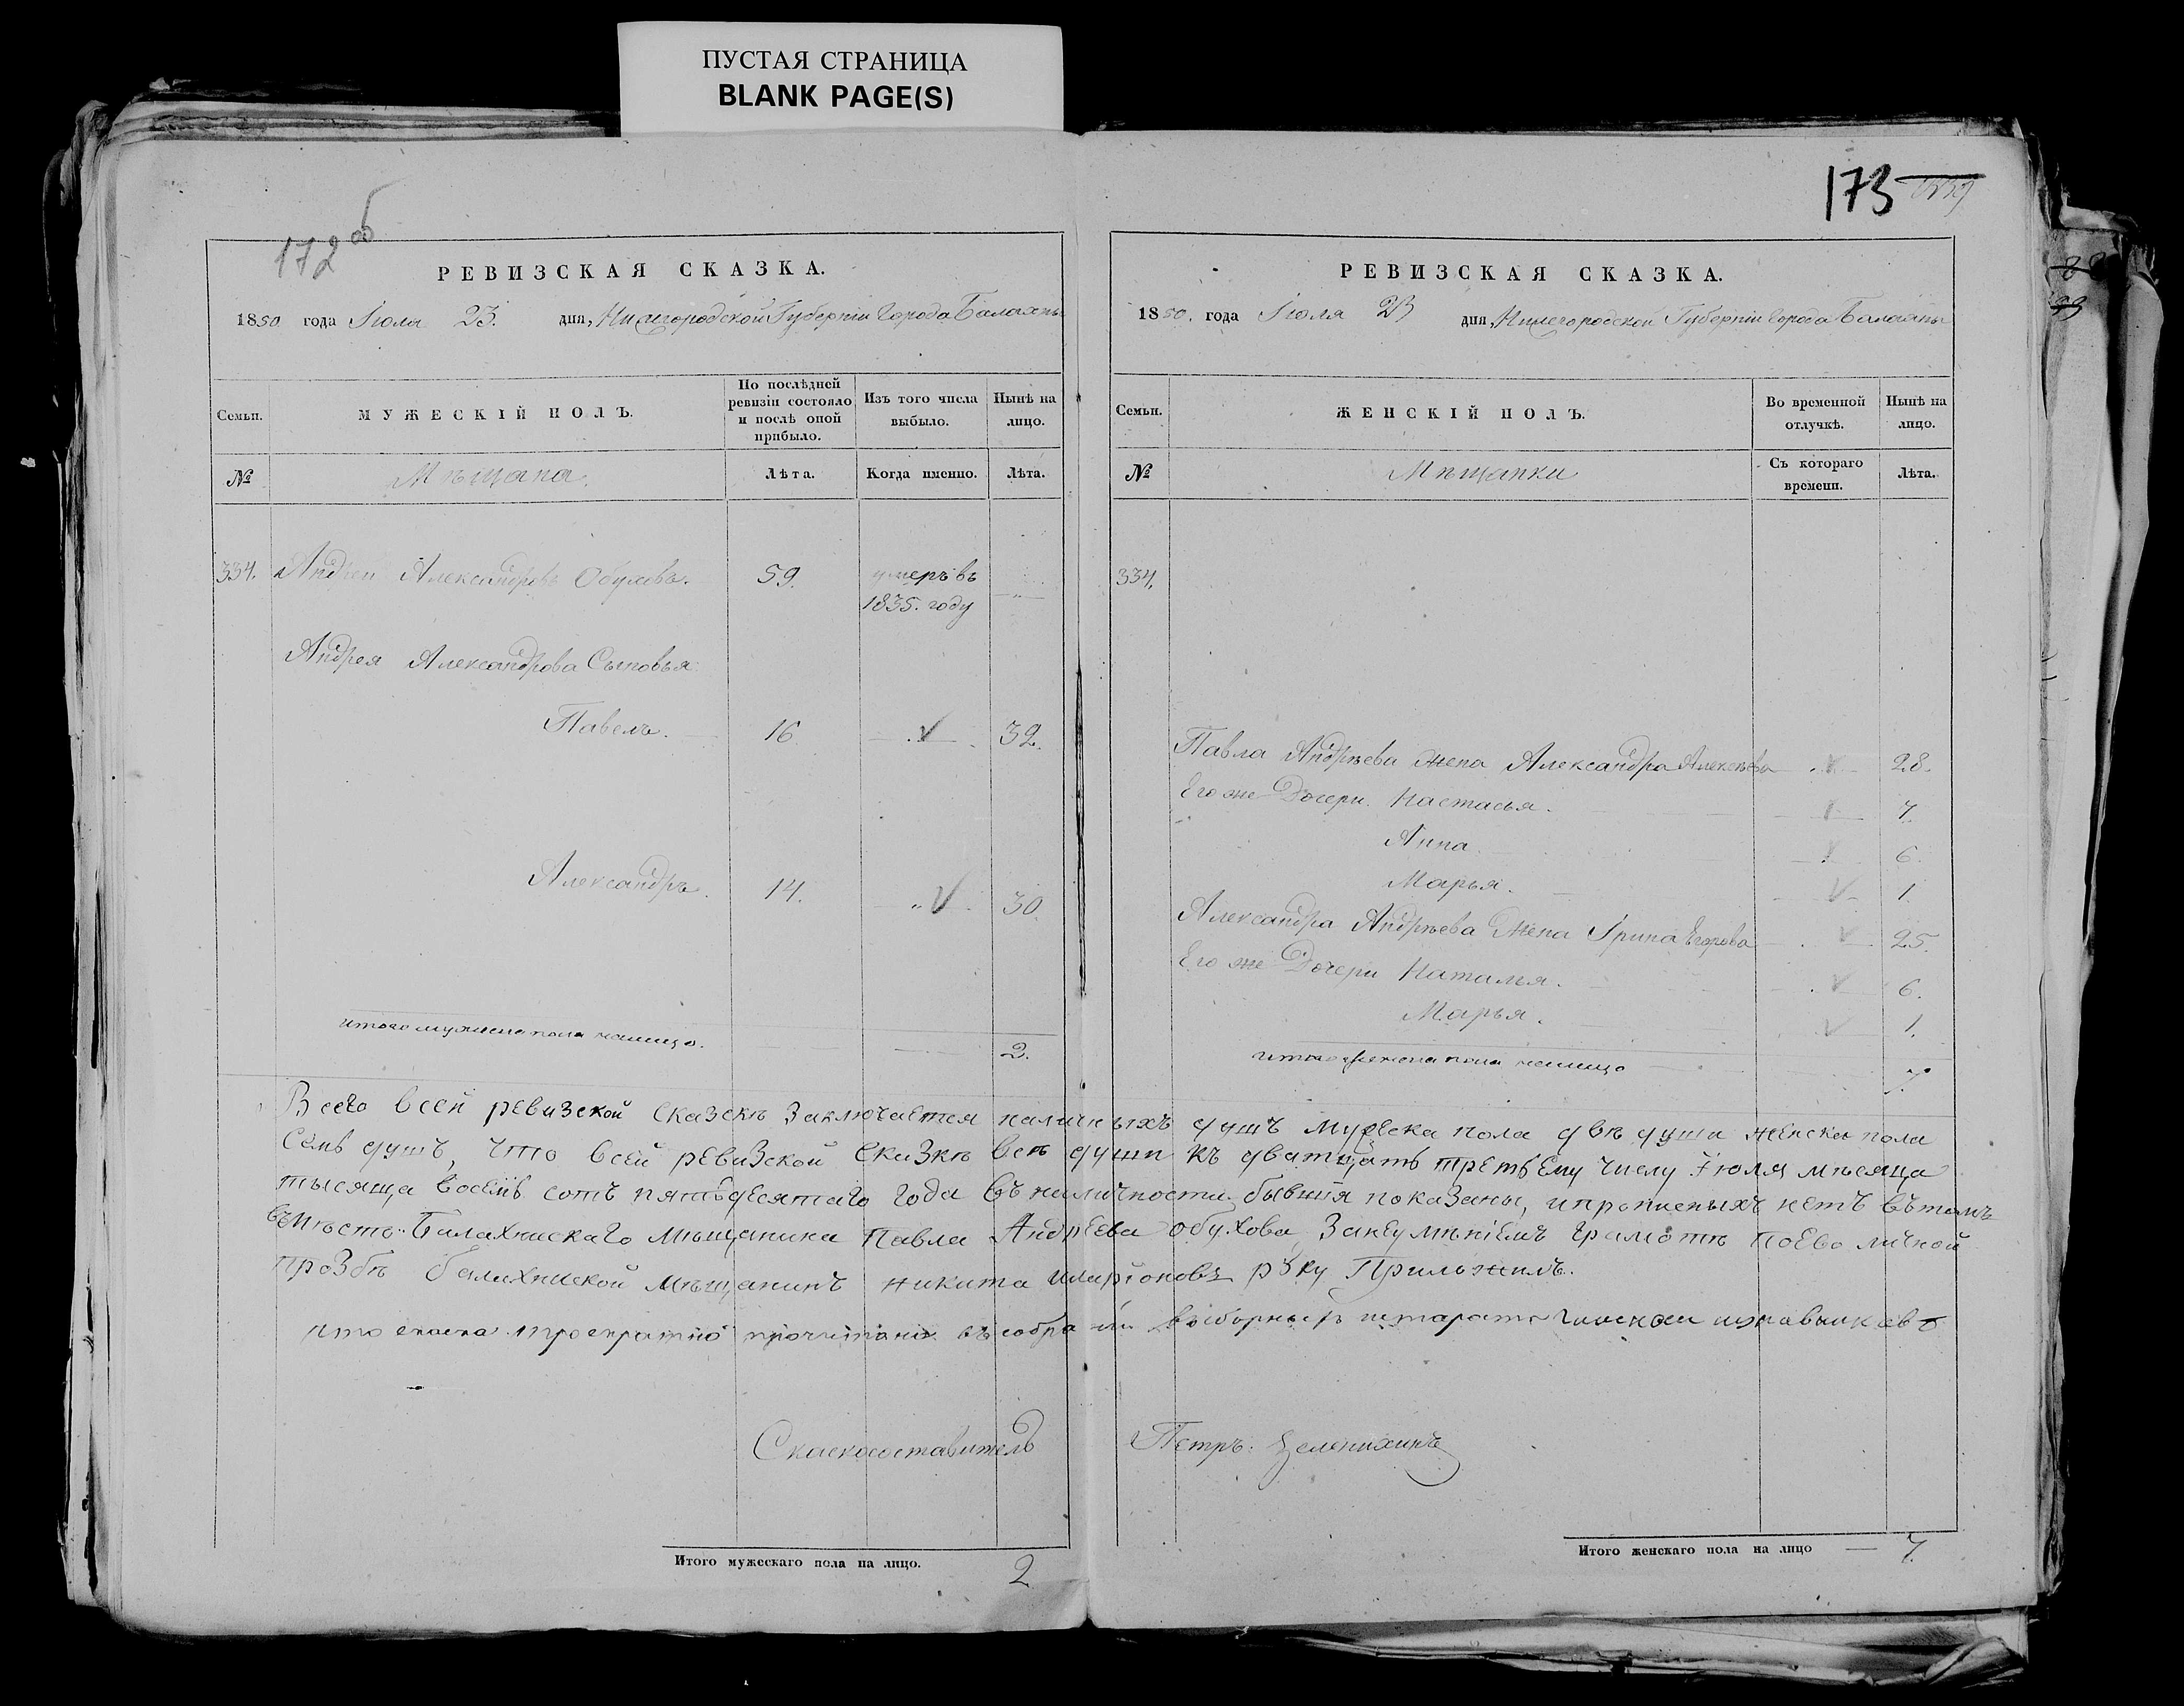 ПУСТАЯ СТРАНИЦА
BLANK PAGE(S)
172 об
РЕВИЗСКАЯ СКАЗКА.
1850 года Іюля 23. дня, Нижегородской Губерніи Города Балахны
Семьи. МУЖЕСКІЙ ПОЛЪ. По послѣдней ревизіи состояло и послѣ оной прибыло. Изъ того числа выбыло. Нынѣ на лицо.
№ Мѣщана. Лѣта. Когда именно. Лѣта.
334. Андреи Александровъ Обуховъ. 59. умеръ въ
1835. году
Андрея Александрова Сыновья
Павелъ. 16 32.
Александръ. 14. 30.
итого мужска пола налицо. 2.
173
РЕВИЗСКАЯ СКАЗКА.
1850. года Іюля 23 дня, Нижегородской Губерніи Города Балахны
Семьи. ЖЕНСКІЙ ПОЛЪ. Во временной отлучкѣ. Нынѣ на лицо.
№ Мѣщанки Съ котораго времени. Лѣта.
334.
Павла Андрѣева жена Александра Алексѣева 28.
Его же Дочери Настасья. 7.
Анна 6.
Марья. 1.
Александра Андрѣева Жена Ірина Егорова 25.
Его же Дочери Наталья. 6.
Марья. 1.
итого женска пола налицо 7.
Всего всей ревизской сказскѣ заключается наличныхъ душъ мужеска пола двѣ души женска пола
семь душъ, что всей ревизской сказкѣ все души къ дватцать третьему числу Іюля мѣсяца
тысяща восемь сотъ пятьдесятаго года въ наличности бывшія показаны, и прописныхъ нетъ въ томъ
вмѣсто Балахнискаго мѣщанина Павла Андреева Обухова за неумѣніемъ грамотѣ по ево личной
прозбѣ балахниской мѣщанинъ никита иларіоновъ руку Приложилъ.
что скаска троекратно прочитана въ собраніи выборныхъ
Скаскосоставитель Петръ Зеленихинъ
Итого мужескаго пола на лицо. 2
Итого женскаго пола на лицо 7.